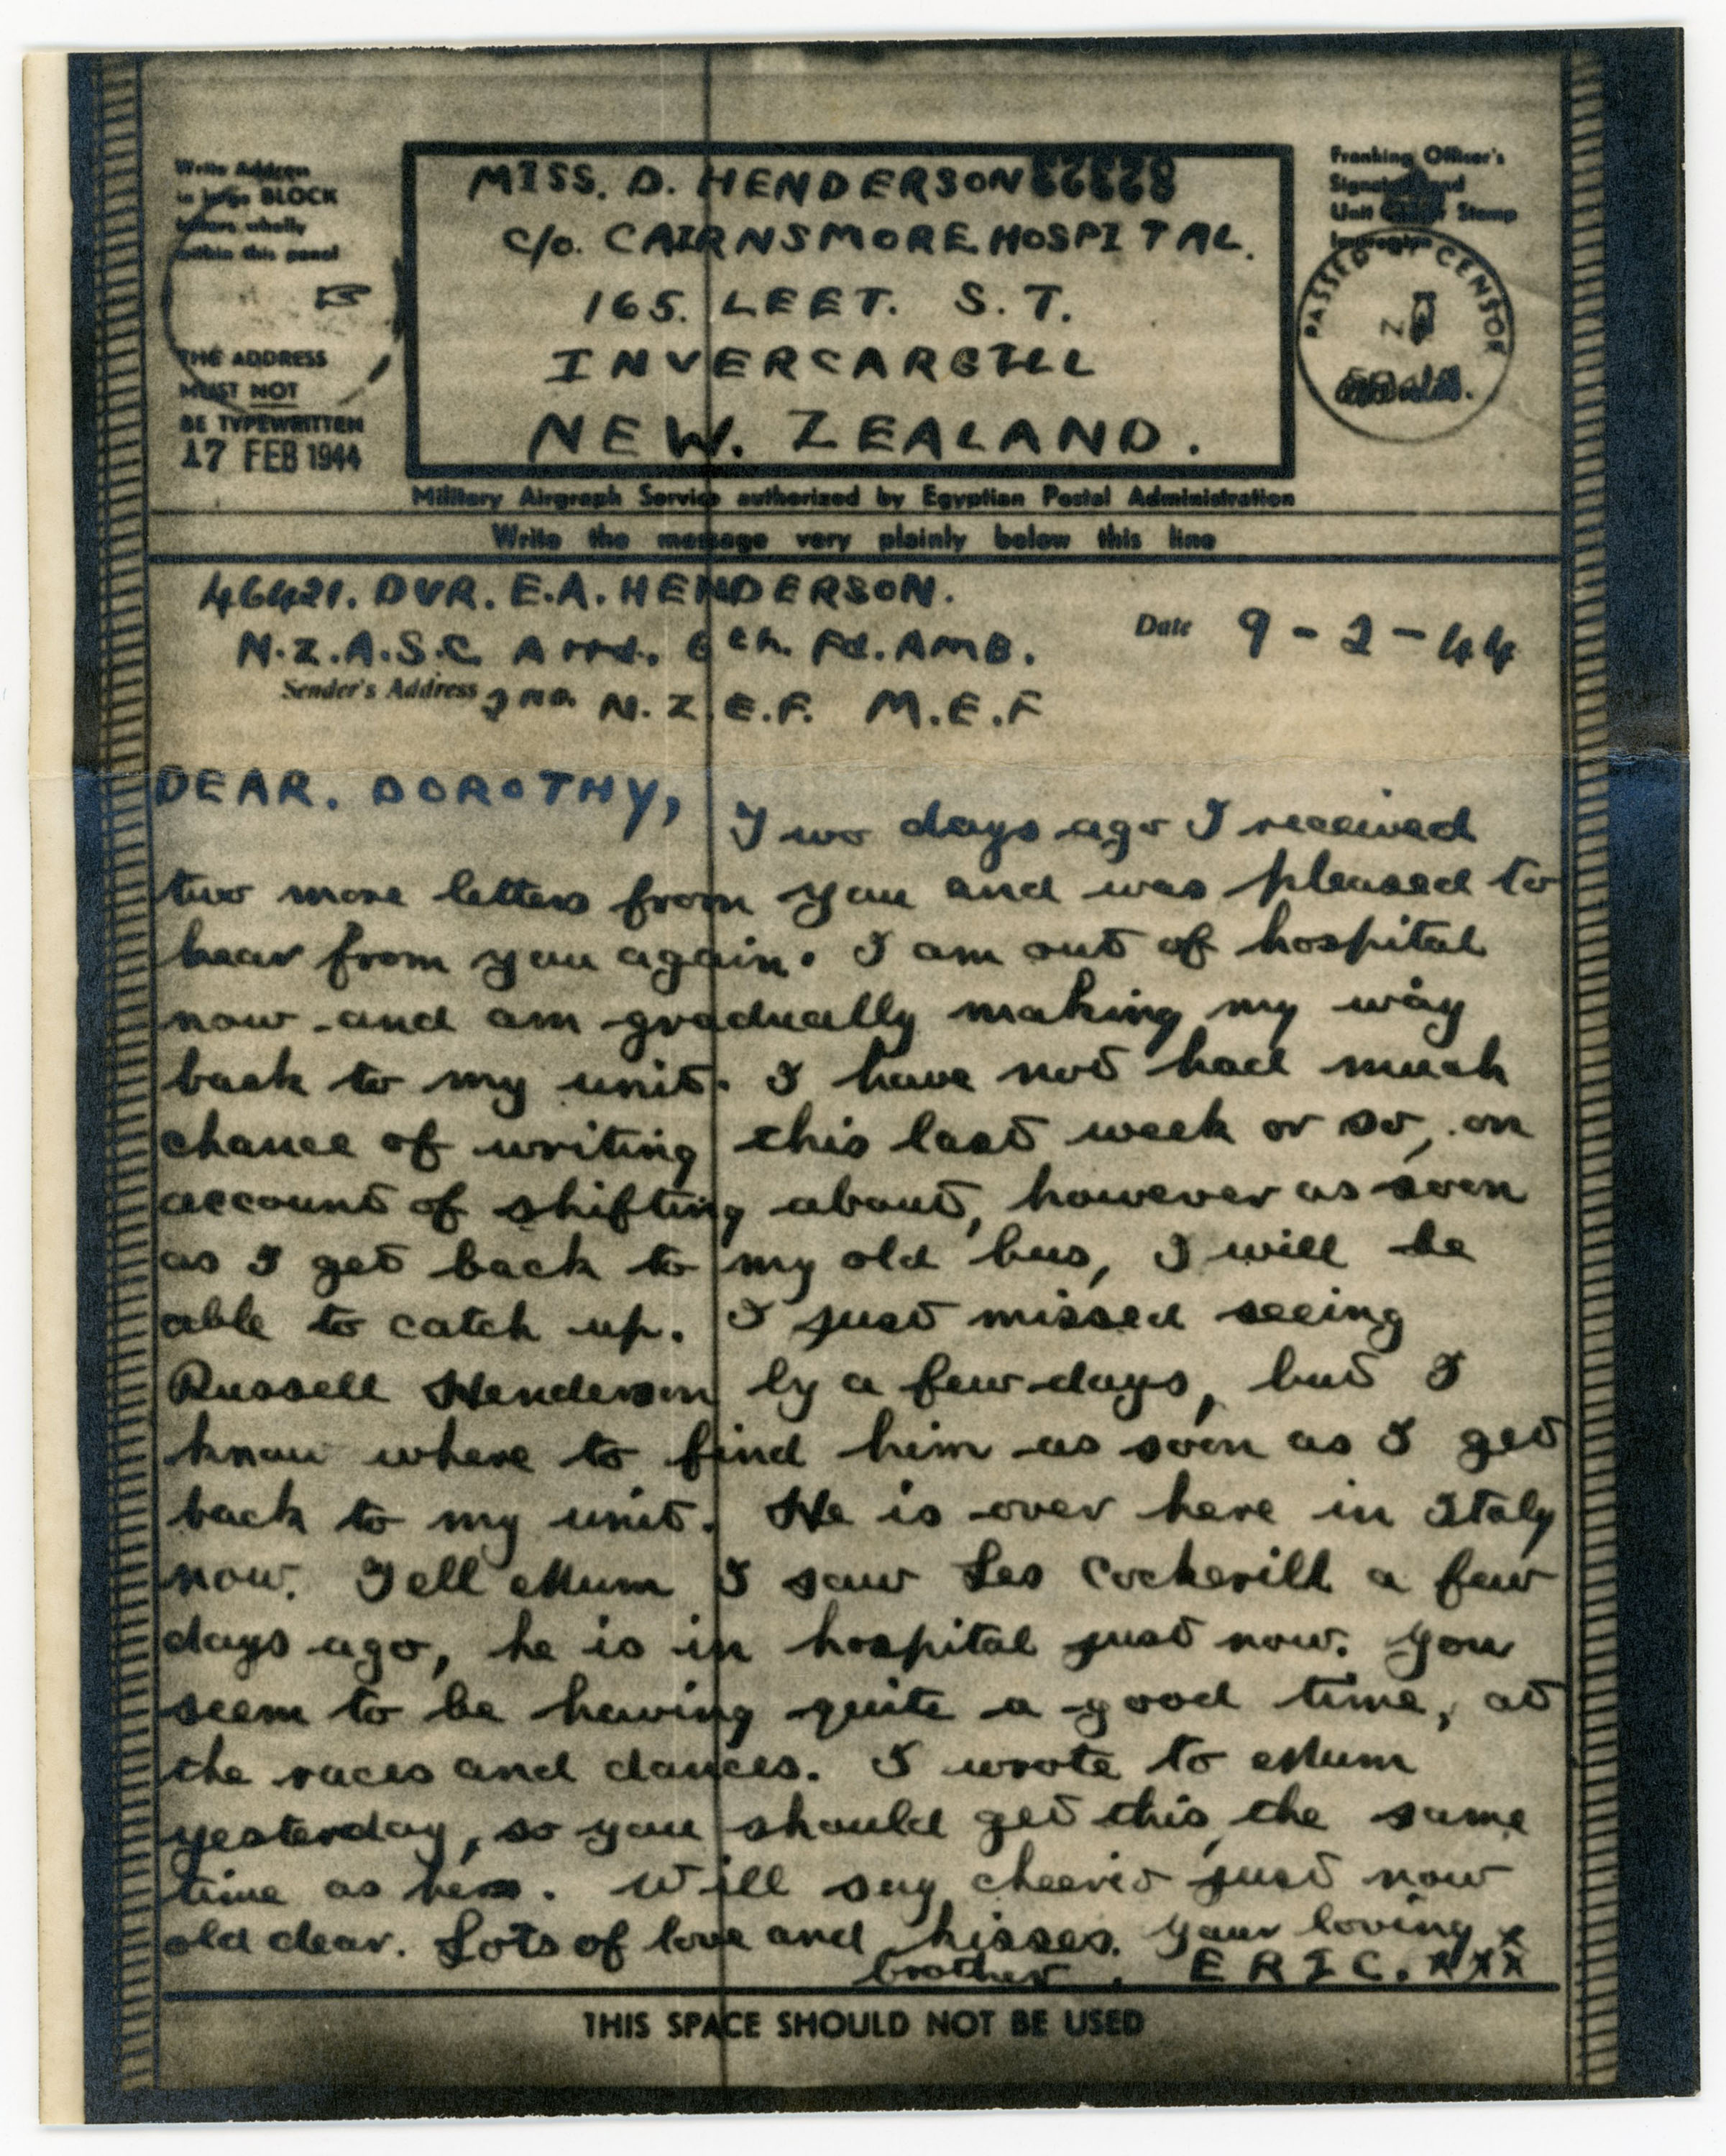 Write Address
in large BLOCK
letters wholly
within this panel
THE ADDRESS
MUST NOT
BE TYPEWRITTEN
17 FEB 1944
MISS. D. HENDERSON
c/o. CAIRNSMORE HOSPITAL.
165. LEET. S.T.
INVERCARGILL
NEW. ZEALAND.
Franking Officer's
Signature and
Unit Stamp
PASSED BY CENSOR
Military Airgraph Service authorized by Egyptian Postal Administration
Write the message very plainly below this line
46421. DVR. E.A. HENDERSON.
N.Z.A.S.C. Attd. 6th. Fd. AMB.
Sender's Address 2nd. N.Z.E.F. M.E.F
Date 9-2-44
DEAR. DOROTHY,
Two days ago I received
two more letters from you and was pleased to
hear from you again. I am out of hospital
now and am gradually making my way
back to my unit. I have not had much
chance of writing this last week or so, on
account of shifting about, however as soon
as I get back to my old bus, I will be
able to catch up. I just missed seeing
Russell Henderson by a few days, but I
know where to find him as soon as I get
back to my unit. He is over here in Italy
now. Tell Mum I saw Les Cockerill a few
days ago, he is in hospital just now. You
seem to be having quite a good time, at
the races and dances. I wrote to Mum
yesterday, so you should get this, the same
time as hers. Will say cheerio just now
old dear. Lots of love and kisses. Your loving x
brother, ERIC. xxx
THIS SPACE SHOULD NOT BE USED